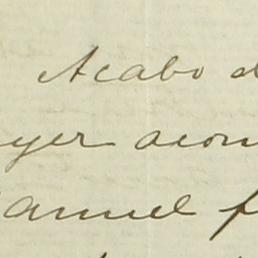 Acabo d
ayer acom
anuel f